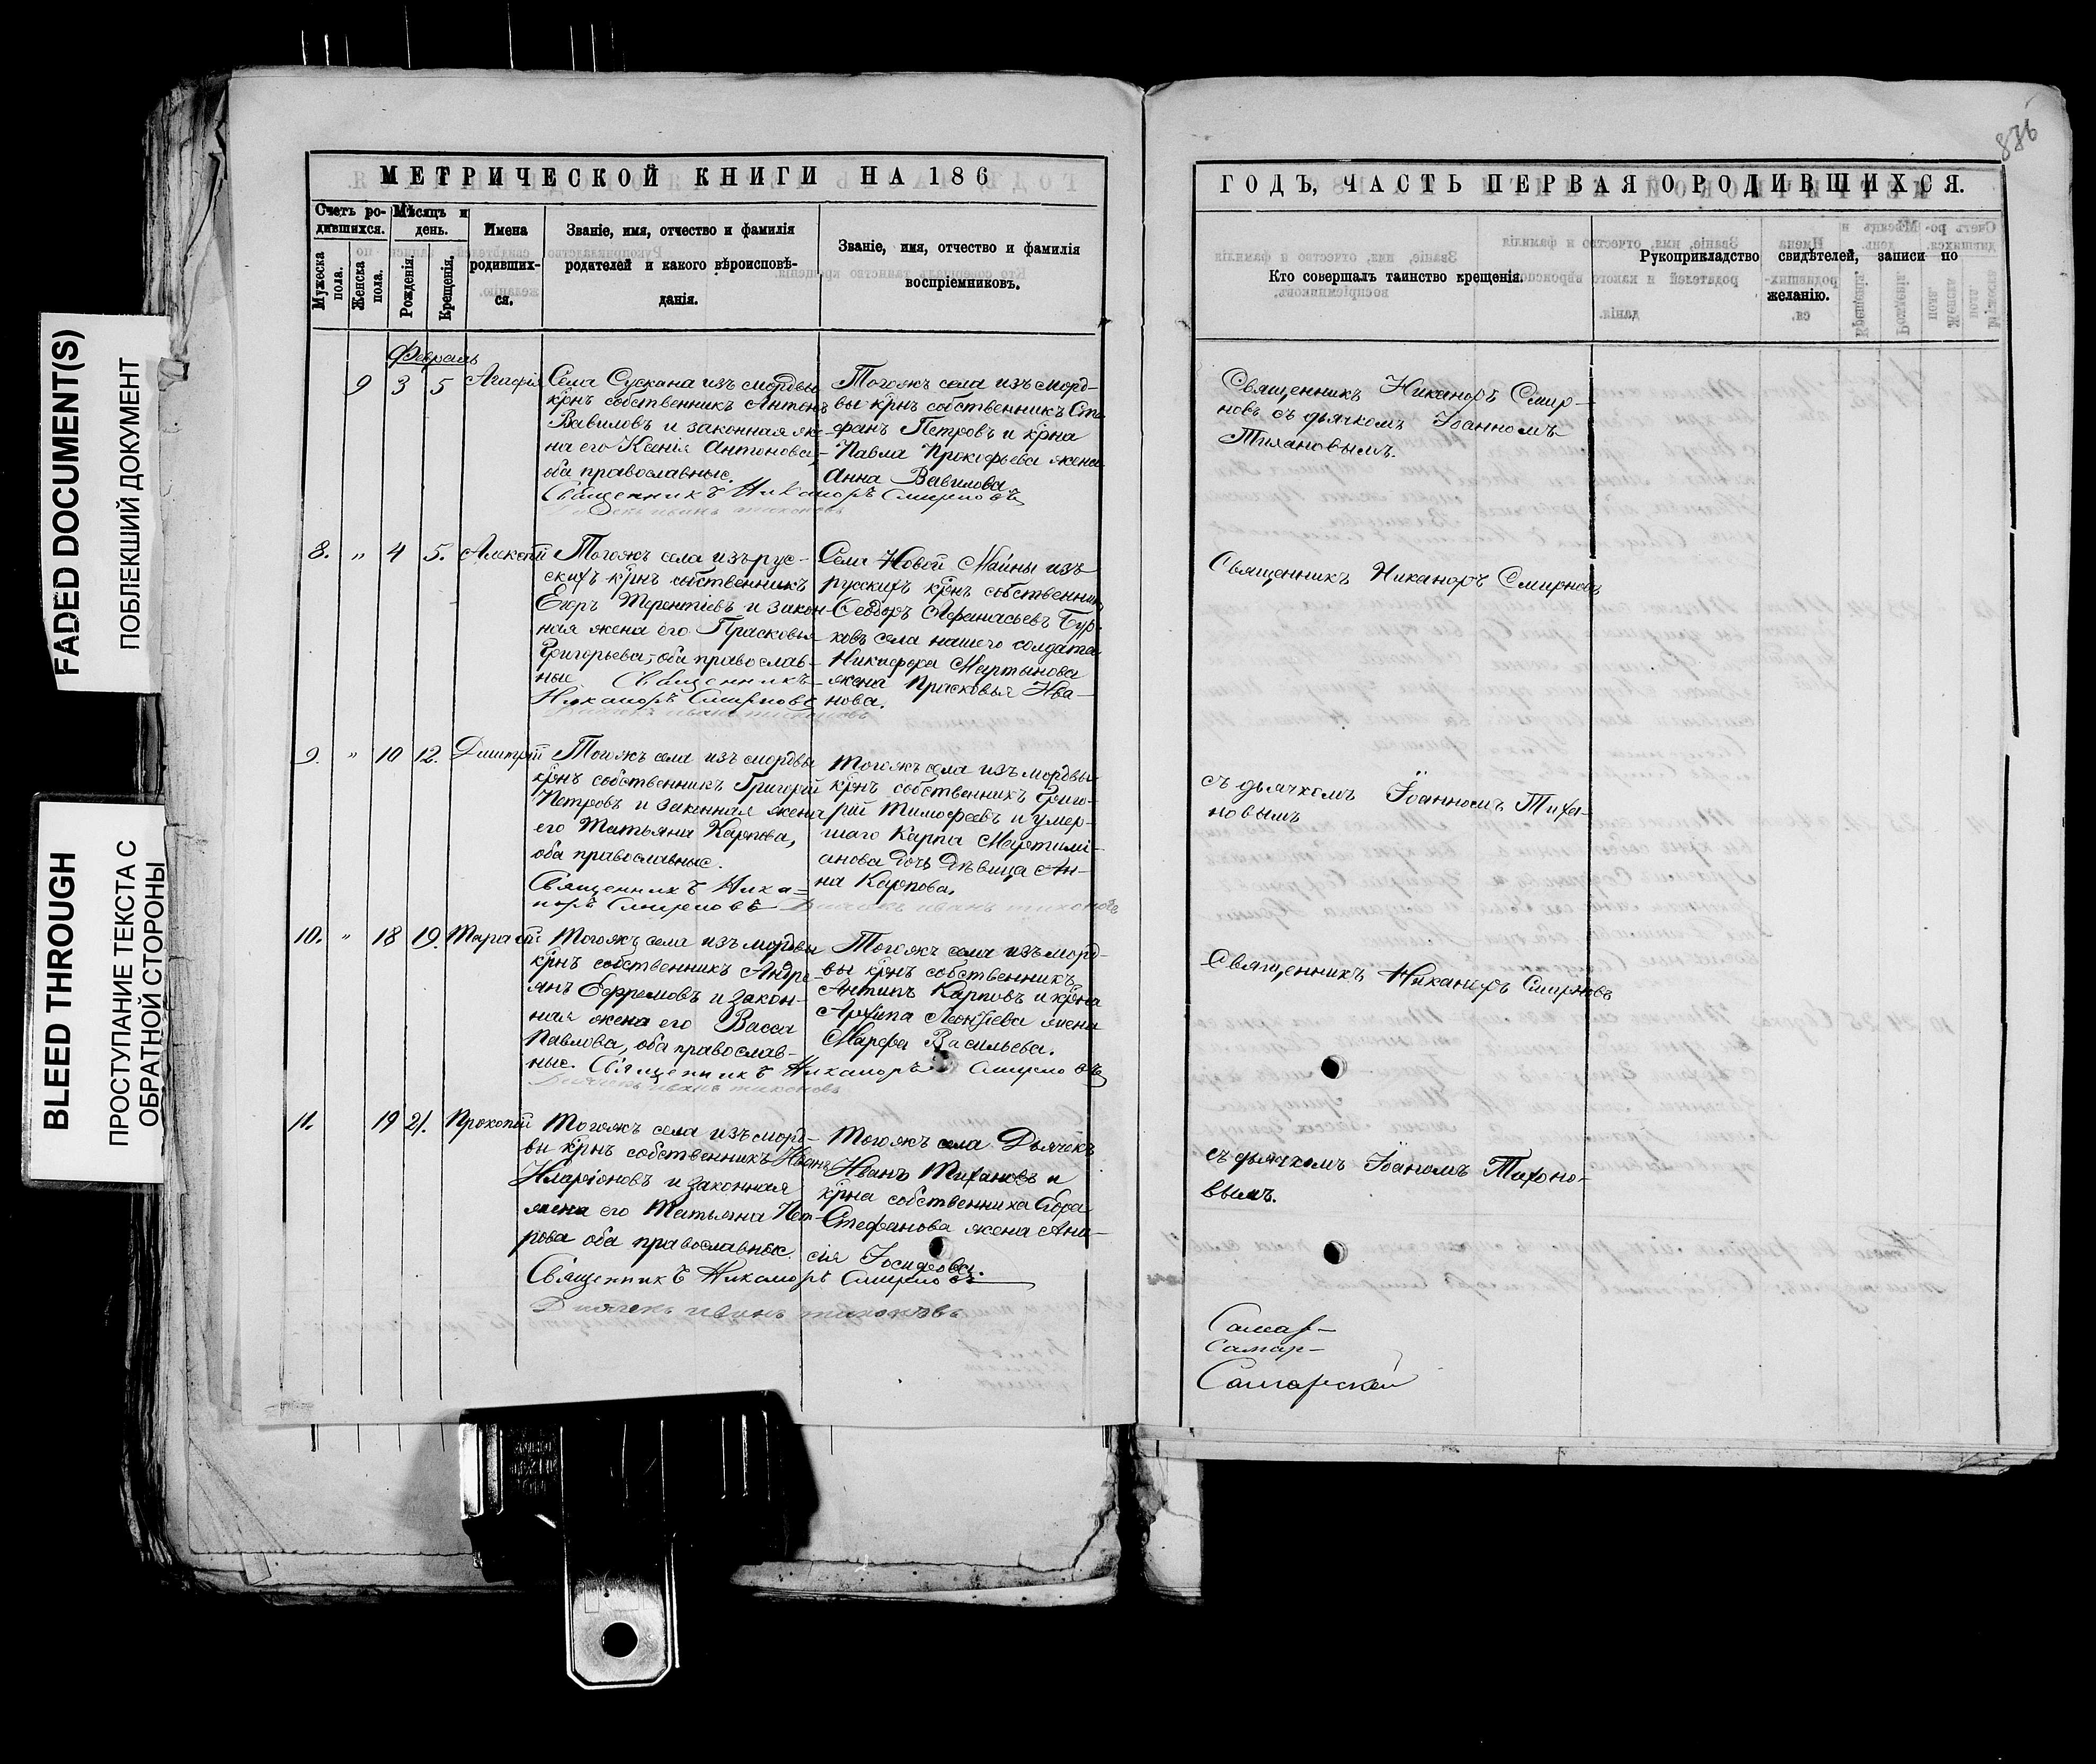 FADED DOCUMENT(S)
ПОБЛЕКШИЙ ДОКУМЕНТ
BLEED THROUGH
ПРОСТУПАНИЕ ТЕКСТА С
ОБРАТНОЙ СТОРОНЫ
МЕТРИЧЕСКОЙ КНИГИ НА 186
Счетъ ро-
дившихся.
Мѣсяцъ и
день.
Мужеска
пола.
Женска
пола.
Рожденія.
Крещенія.
Имена
родивших-
ся.
Званіе, имя, отчество и фамилія
родителей и какого вѣроисповѣ-
данія.
Званіе, имя, отчество и фамилія
воспріемниковъ.
Февраль
9 3 5 Агафія
Села Сускана изъ мордвы
крнъ собственникъ Антонъ
Вавиловъ и законная же-
на его Ксенія Антонова,
оба православные.
Тогожъ села изъ морд-
вы крнъ собственникъ Сте-
фанъ Петровъ и крна
Павла Прокофьева жена
Анна Вавилова
Священникъ Никаноръ Смирновъ
Дьячекъ иванъ тихоновъ
8. " 4 5. Алексѣй
Тогожъ села изъ рус-
скихъ крнъ собственникъ
Егоръ Терентіевъ и закон-
ная жена его Прасковья
Григорьева, оба православ-
ные Священникъ
Никаноръ Смирновъ
Дьячекъ иванъ тихоновъ
Села Новой Майны изъ
русскихъ крнъ собственникъ
Ѳеодоръ Афанасьевъ Бур-
ковъ села нашего солдата
Никифора Мартынова
жена Прасковья Ива-
нова.
9. " 10 12. Дмитрій
Тогожъ села изъ мордвы
крнъ собственникъ Григорій
Петровъ и законная жена
его Татьяна Карпова,
оба православные.
Священникъ Ника=
норъ Смирновъ Дьячекъ иванъ тихоновъ
Тогожъ села изъ мордвы
крнъ собственникъ Григо-
рій Тимофеевъ и умер-
шаго Карпа
анова дочь дѣвица Ан-
на Карпова.
10. " 18 19. Тарасій
Тогожъ села изъ мордвы
крнъ собственникъ Андре-
янъ Ефремовъ и закон-
ная жена его Васса
Павлова, оба православ-
ные. Священникъ Никаноръ Смирновъ
Дьячекъ иванъ тихоновъ
Тогожъ села изъ морд-
вы крнъ собственникъ
Антипъ Карповъ и крна
Архипа Леонтіева жена
Марфа Васильева.
11. 19 21. Прокопій
Тогожъ села изъ морд-
вы крнъ собственникъ Иванъ
Иларіоновъ и законная
жена его Татьяна Пет-
рова оба православные.
Тогожъ села Дьячекъ
Иванъ Тихановъ и
крна собственника Егора
Стефанова жена Ана-
сія Іосифова.
Священникъ Никаноръ Смирновъ
Дьячекъ иванъ тихоновъ
836
ГОДЪ, ЧАСТЬ ПЕРВАЯ О РОДИВШИХСЯ.
Кто совершалъ таинство крещенія.
Рукоприкладство свидѣтелей, записи по
желанію.
Священникъ Никаноръ Смир-
новъ съ дьячкомъ Іоанномъ
Тихановымъ.
Священникъ Никаноръ Смирновъ
съ дьячкомъ Іоанномъ Тиха-
новымъ
Священникъ Никаноръ Смирновъ
съ дьячкомъ Іоаномъ Тихоно-
вымъ.
Самар-
Самар-
Самарской